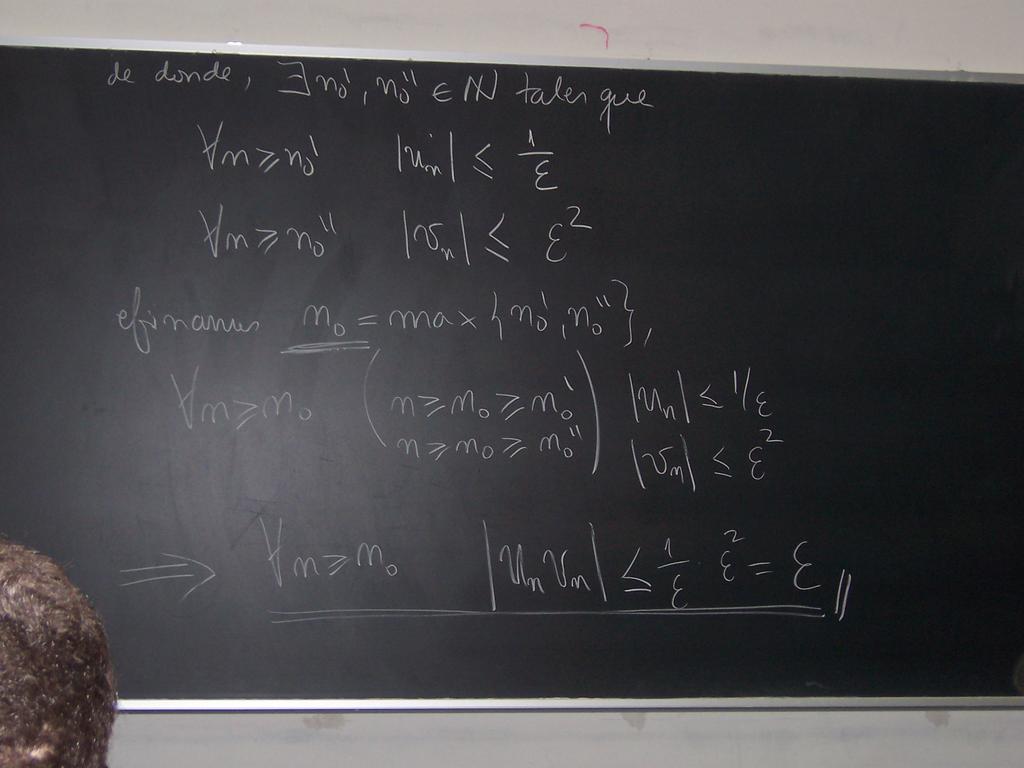 de donde, ∃ n₀', n₀'' ∈ ℕ tales que
∀n ≥ n₀' |uₙ| ≤ 1/ε
∀n ≥ n₀'' |vₙ| ≤ ε²
efinamus n₀ = max {n₀', n₀''},
∀n ≥ n₀ (n ≥ n₀ ≥ n₀' |uₙ| ≤ 1/ε
n ≥ n₀ ≥ n₀'') |vₙ| ≤ ε²
⇒ ∀n ≥ n₀ |uₙ vₙ| ≤ 1/ε · ε² = ε //